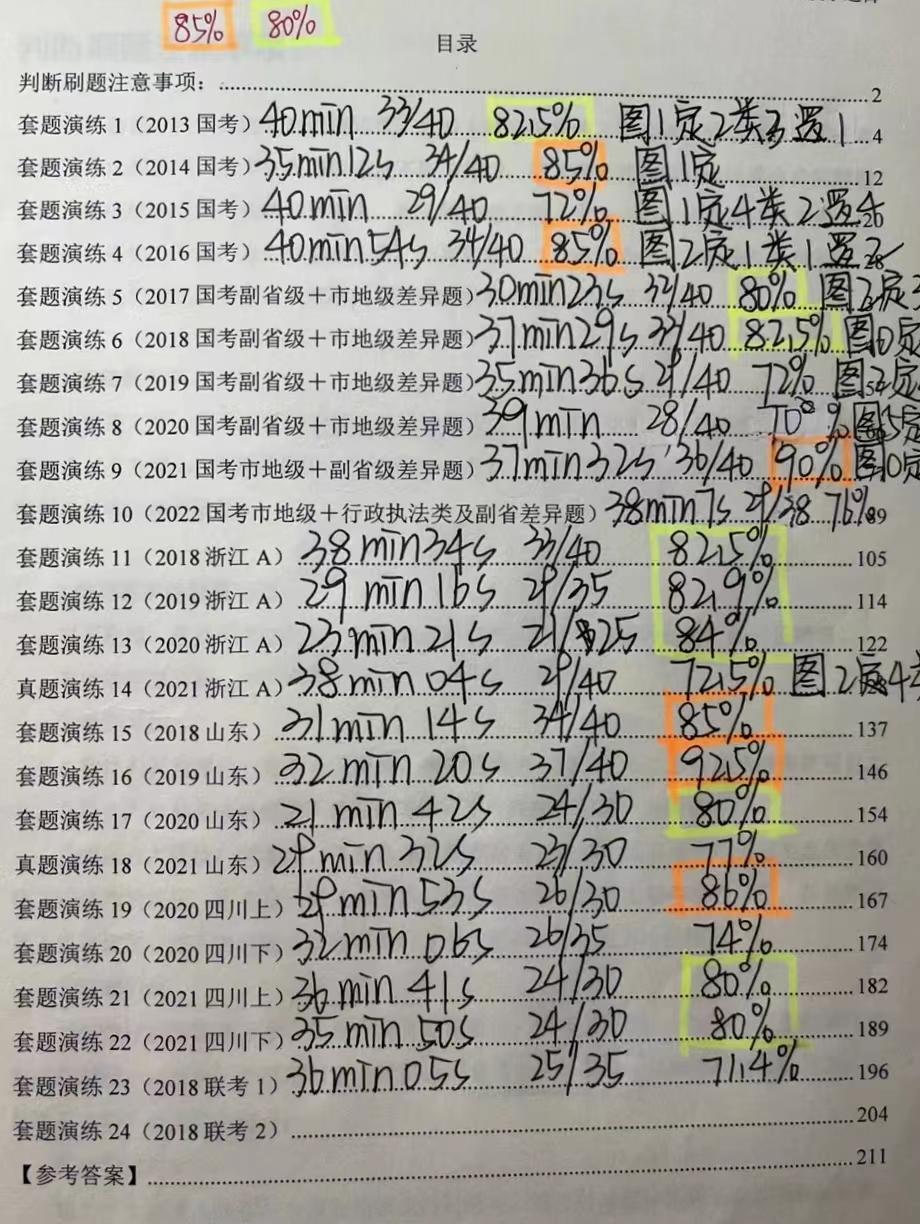 85% 80%
目录
判断刷题注意事项： 2
套题演练 1（2013 国考） 40min 33/40 82.5% 图1定2类3逻1 4
套题演练 2（2014 国考） 35min12s 34/40 85% 图1定 12
套题演练 3（2015 国考） 40min 29/40 72% 图1定4类2逻4 20
套题演练 4（2016 国考） 40min54s 34/40 85% 图2定1类1逻2
套题演练 5（2017 国考副省级＋市地级差异题） 30min23s 32/40 80% 图2定
套题演练 6（2018 国考副省级＋市地级差异题） 37min29s 33/40 82.5% 图0定
套题演练 7（2019 国考副省级＋市地级差异题） 35min36s 29/40 72% 图2定
套题演练 8（2020 国考副省级＋市地级差异题） 39min 28/40 70% 图5定
套题演练 9（2021 国考市地级＋副省级差异题） 37min32s 36/40 90% 图0定
套题演练 10（2022 国考市地级＋行政执法类及副省差异题） 38min7s 29/38 76% 89
套题演练 11（2018 浙江 A） 38min34s 33/40 82.5% 105
套题演练 12（2019 浙江 A） 29min16s 29/35 82.9% 114
套题演练 13（2020 浙江 A） 23min21s 21/25 84% 122
真题演练 14（2021 浙江 A） 38min04s 29/40 72.5% 图2定4
套题演练 15（2018 山东） 31min14s 34/40 85% 137
套题演练 16（2019 山东） 32min20s 37/40 92.5% 146
套题演练 17（2020 山东） 21min42s 24/30 80% 154
真题演练 18（2021 山东） 29min32s 23/30 77% 160
套题演练 19（2020 四川上） 29min53s 26/30 86% 167
套题演练 20（2020 四川下） 32min06s 26/35 74% 174
套题演练 21（2021 四川上） 36min41s 24/30 80% 182
套题演练 22（2021 四川下） 35min50s 24/30 80% 189
套题演练 23（2018 联考 1） 36min05s 25/35 71.4% 196
套题演练 24（2018 联考 2） 204
【参考答案】 211